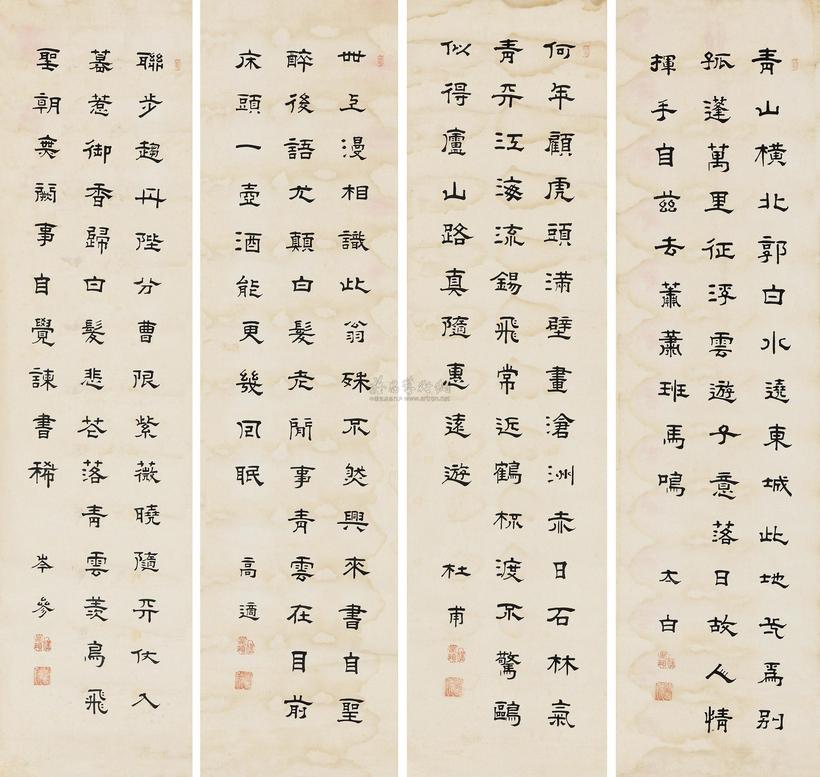 青山橫北郭白水遶東城此地弌爲別
孤蓬萬里征浮雲遊子意落日故人情
揮手自茲去蕭蕭班馬鳴 太白
何年顧虎頭滿壁畫滄洲赤日石林氣
青天江海流錫飛常近鶴杯渡不驚鷗
似得廬山路真隨惠遠遊 杜甫
世上漫相識此翁殊不然興來書自聖
醉後語尤顛白髮老閒事青雲在目前
床頭一壺酒能更幾回眠 高適
聯步趨丹陛分曹限紫薇曉隨天仗入
暮惹御香歸白髮悲花落青雲羨鳥飛
聖朝無闕事自覺諫書稀 岑參
www.artron.net